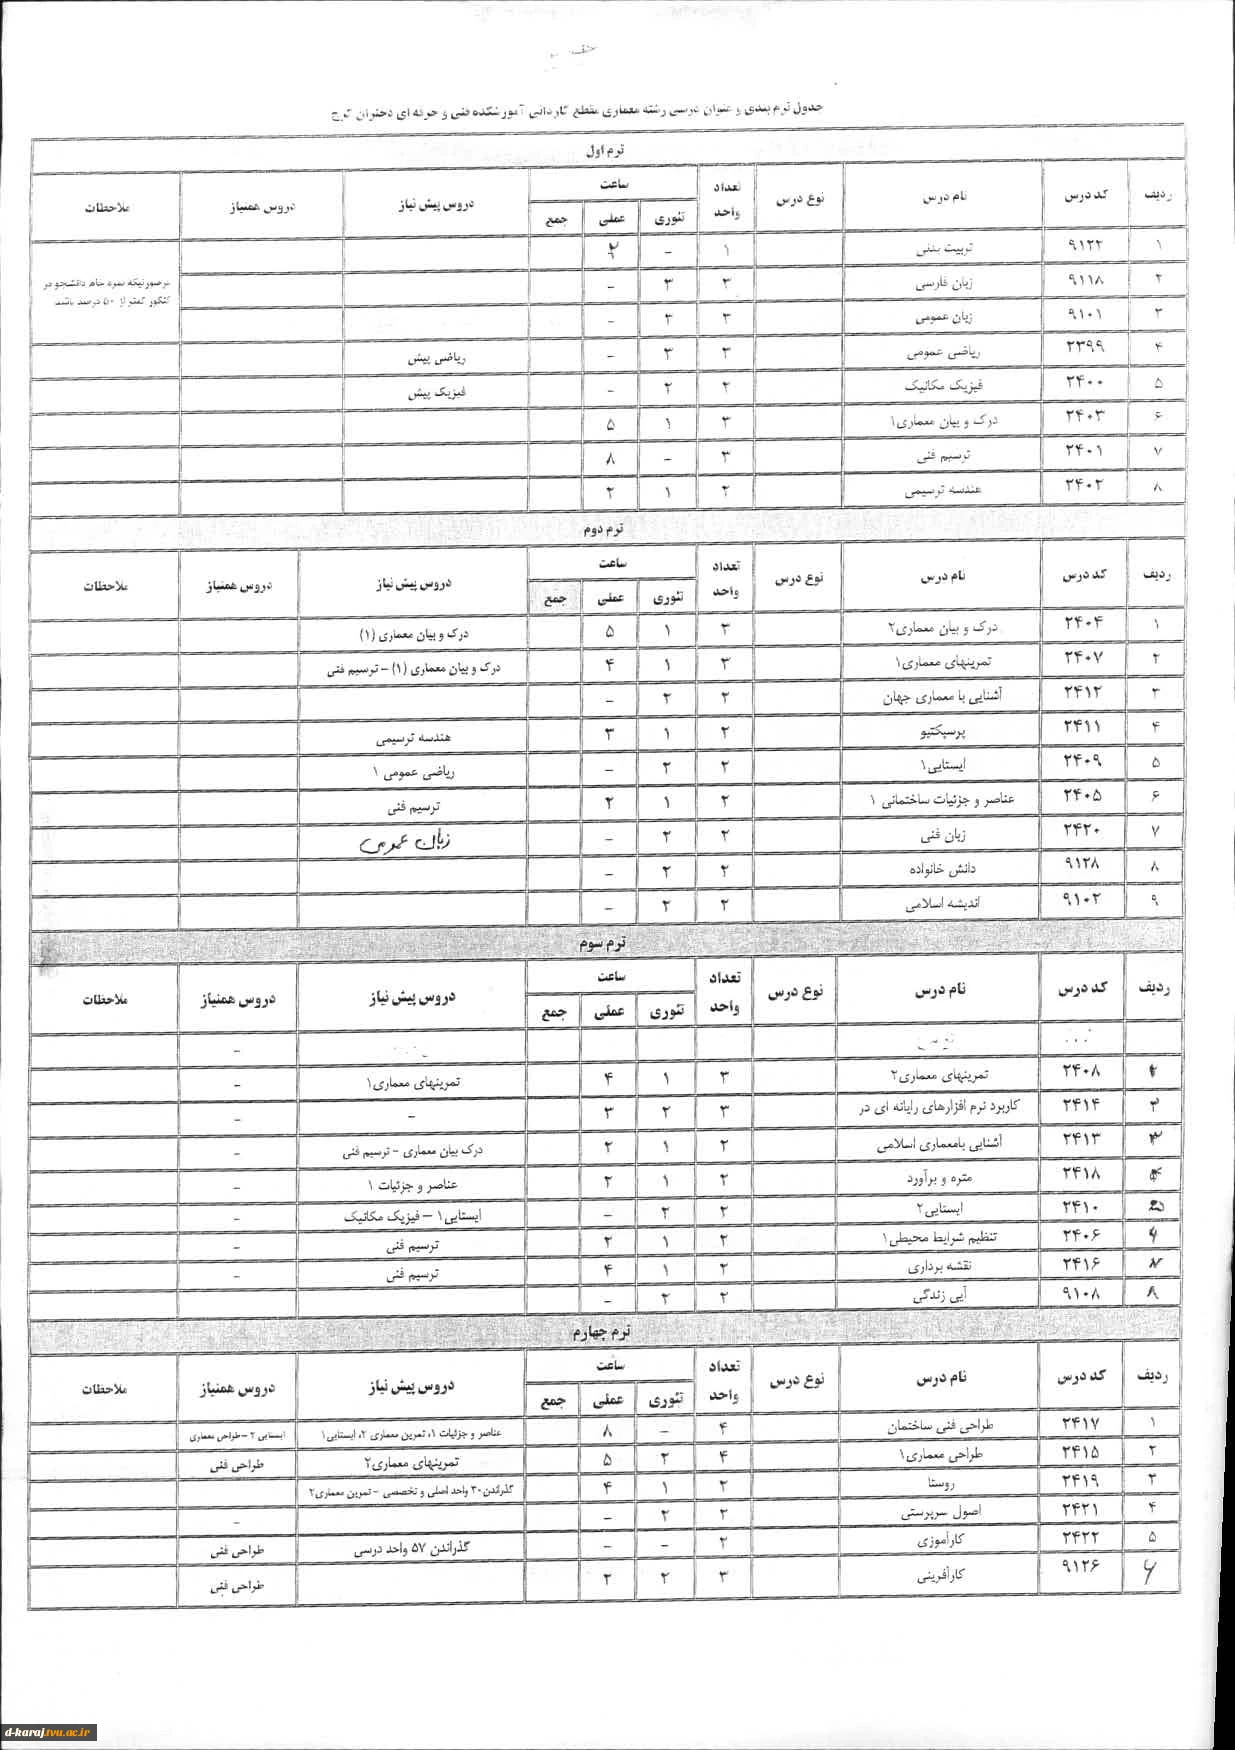 جدول ترم بندی و عنوان درسی رشته معماری مقطع کاردانی آموزشکده فنی و حرفه ای دختران کرج
ترم اول
ردیف | کد درس | نام درس | نوع درس | تعداد واحد | ساعت | تئوری | عملی | جمع | دروس پیش نیاز | دروس همنیاز | ملاحظات
۱ | ۹۱۲۲ | تربیت بدنی | ۱ | - | ۲
۲ | ۹۱۱۸ | زبان فارسی | ۳ | ۳ | - | در صورتیکه نمره خام دانشجو در
۳ | ۹۱۰۱ | زبان عمومی | ۳ | ۳ | - | کنکور کمتر از ۵۰ درصد باشد
۴ | ۲۳۹۹ | ریاضی عمومی | ۳ | ۳ | - | ریاضی پیش
۵ | ۲۴۰۰ | فیزیک مکانیک | ۲ | ۲ | - | فیزیک پیش
۶ | ۲۴۰۳ | درک و بیان معماری۱ | ۳ | ۱ | ۵
۷ | ۲۴۰۱ | ترسیم فنی | ۳ | - | ۸
۸ | ۲۴۰۲ | هندسه ترسیمی | ۲ | ۱ | ۲
ترم دوم
ردیف | کد درس | نام درس | نوع درس | تعداد واحد | ساعت | تئوری | عملی | جمع | دروس پیش نیاز | دروس همنیاز | ملاحظات
۱ | ۲۴۰۴ | درک و بیان معماری۲ | ۳ | ۱ | ۵ | درک و بیان معماری (۱)
۲ | ۲۴۰۷ | تمرینهای معماری۱ | ۳ | ۱ | ۴ | درک و بیان معماری (۱) – ترسیم فنی
۳ | ۲۴۱۲ | آشنایی با معماری جهان | ۲ | ۲ | -
۴ | ۲۴۱۱ | پرسپکتیو | ۲ | ۱ | ۳ | هندسه ترسیمی
۵ | ۲۴۰۹ | ایستایی۱ | ۲ | ۲ | - | ریاضی عمومی ۱
۶ | ۲۴۰۵ | عناصر و جزئیات ساختمانی ۱ | ۲ | ۱ | ۲ | ترسیم فنی
۷ | ۲۴۲۰ | زبان فنی | ۲ | ۲ | - | زبان عمومی
۸ | ۹۱۲۸ | دانش خانواده | ۲ | ۲ | -
۹ | ۹۱۰۲ | اندیشه اسلامی | ۲ | ۲ | -
ترم سوم
ردیف | کد درس | نام درس | نوع درس | تعداد واحد | ساعت | تئوری | عملی | جمع | دروس پیش نیاز | دروس همنیاز | ملاحظات
-
۱ | ۲۴۰۸ | تمرینهای معماری۲ | ۳ | ۱ | ۴ | تمرینهای معماری۱ | -
۲ | ۲۴۱۴ | کاربرد نرم افزارهای رایانه ای در | ۳ | ۲ | ۳ | - | -
۳ | ۲۴۱۳ | آشنایی بامعماری اسلامی | ۲ | ۱ | ۲ | درک بیان معماری – ترسیم فنی | -
۴ | ۲۴۱۸ | متره و برآورد | ۲ | ۱ | ۲ | عناصر و جزئیات ۱ | -
۵ | ۲۴۱۰ | ایستایی۲ | ۲ | ۲ | - | ایستایی۱ – فیزیک مکانیک | -
۶ | ۲۴۰۶ | تنظیم شرایط محیطی۱ | ۲ | ۱ | ۲ | ترسیم فنی | -
۷ | ۲۴۱۶ | نقشه برداری | ۲ | ۱ | ۴ | ترسیم فنی | -
۸ | ۹۱۰۸ | آیی زندگی | ۲ | ۲ | -
ترم چهارم
ردیف | کد درس | نام درس | نوع درس | تعداد واحد | ساعت | تئوری | عملی | جمع | دروس پیش نیاز | دروس همنیاز | ملاحظات
۱ | ۲۴۱۷ | طراحی فنی ساختمان | ۴ | - | ۸ | عناصر و جزئیات ۱، تمرین معماری ۲، ایستایی۱ | ایستایی ۲ – طراحی معماری
۲ | ۲۴۱۵ | طراحی معماری۱ | ۴ | ۲ | ۵ | تمرینهای معماری۲ | طراحی فنی
۳ | ۲۴۱۹ | روستا | ۲ | ۱ | ۴ | گذراندن۳۰ واحد اصلی و تخصصی – تمرین معماری۲
۴ | ۲۴۲۱ | اصول سرپرستی | ۲ | ۲ | - | -
۵ | ۲۴۲۲ | کارآموزی | ۲ | - | - | گذراندن ۵۷ واحد درسی | طراحی فنی
۶ | ۹۱۲۶ | کارآفرینی | ۳ | ۲ | ۲ | طراحی فنی
d-karaj.tvu.ac.ir